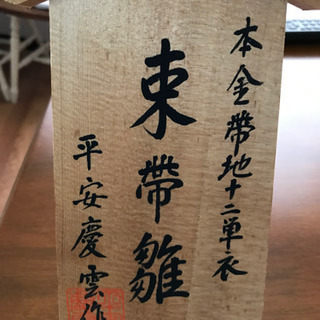 本金帶地十二単衣
束帶雛
平安慶雲作